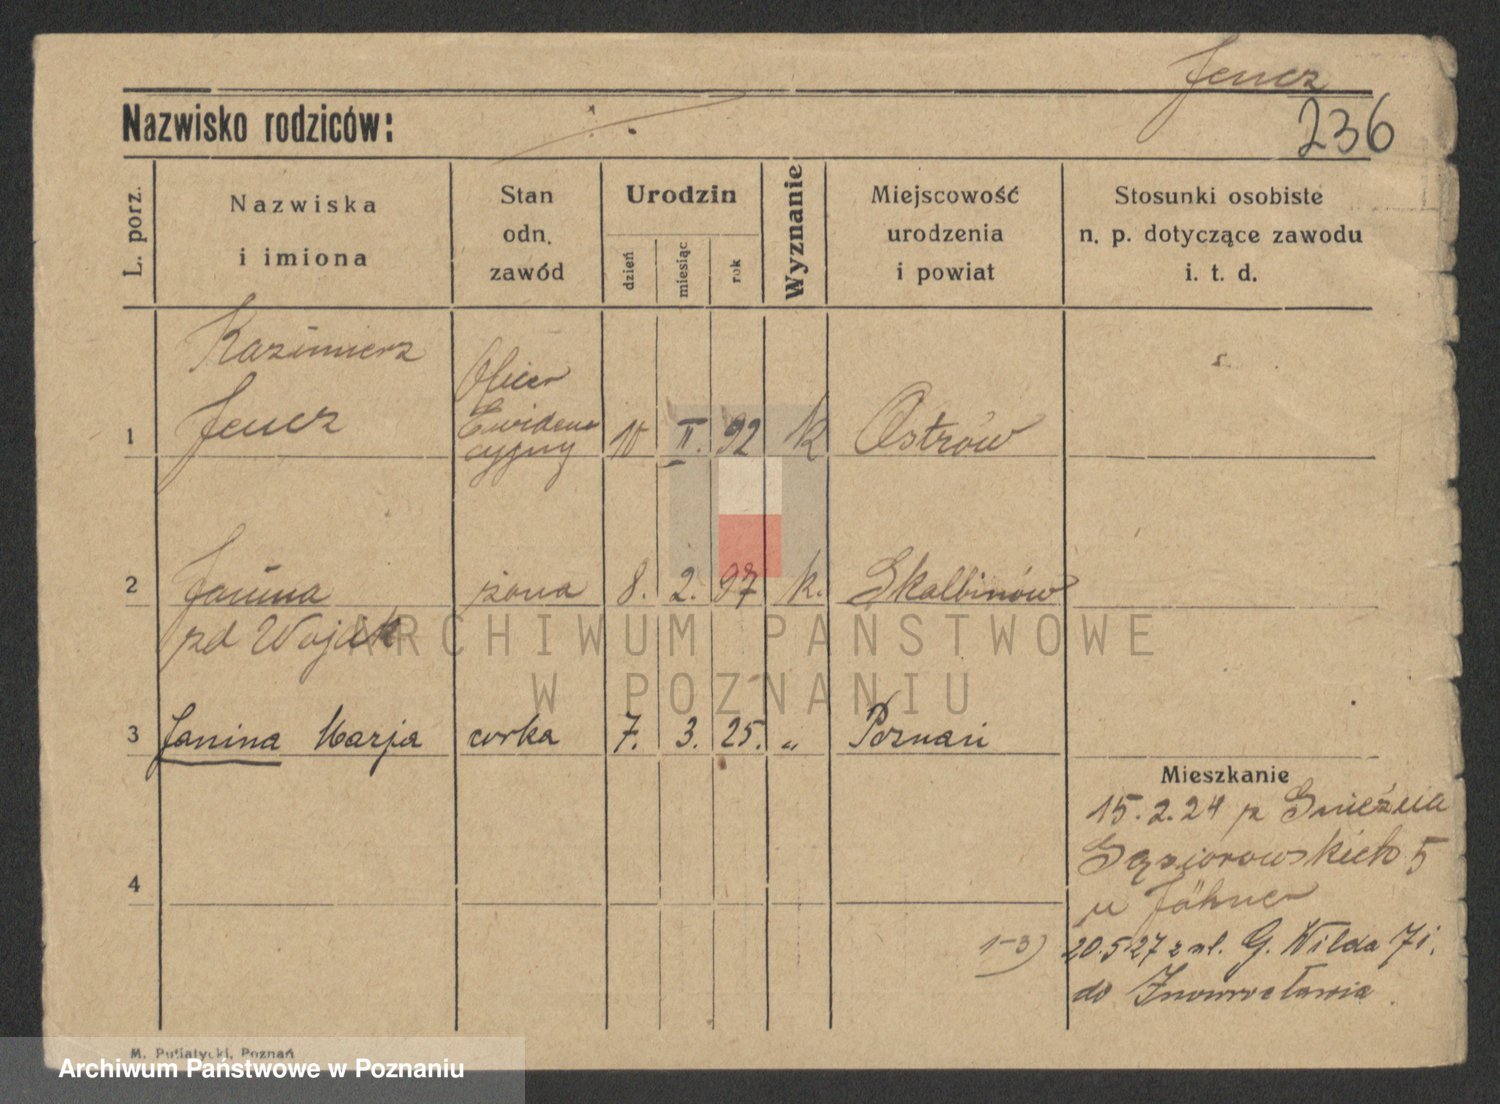 Jenez
236
Nazwisko rodziców:
L. porz.
Nazwiska
i imiona
Stan
odn.
zawód
Urodzin
dzień
miesiąc
rok
Wyznanie
Miejscowość
urodzenia
i powiat
Stosunki osobiste
n. p. dotyczące zawodu
i. t. d.
Kazimierz
Jenez
Oficer
Ewiden
cyjny
1 10 II. 92 k Ostrów
2 Janina żona 8. 2. 97 k. Skalbinów
zd Wojak
3 Janina Marja corka 7. 3. 25. „ Poznań
Mieszkanie
15.2.24 z Gniezna
Gąsiorowskich 5
u Jähner
4
1-3) 20.5 27 z ul. G. Wilda 71.
do Inowrocławia
M. Putiatycki, Poznań
ARCHIWUM PAŃSTWOWE
W POZNANIU
Archiwum Państwowe w Poznaniu